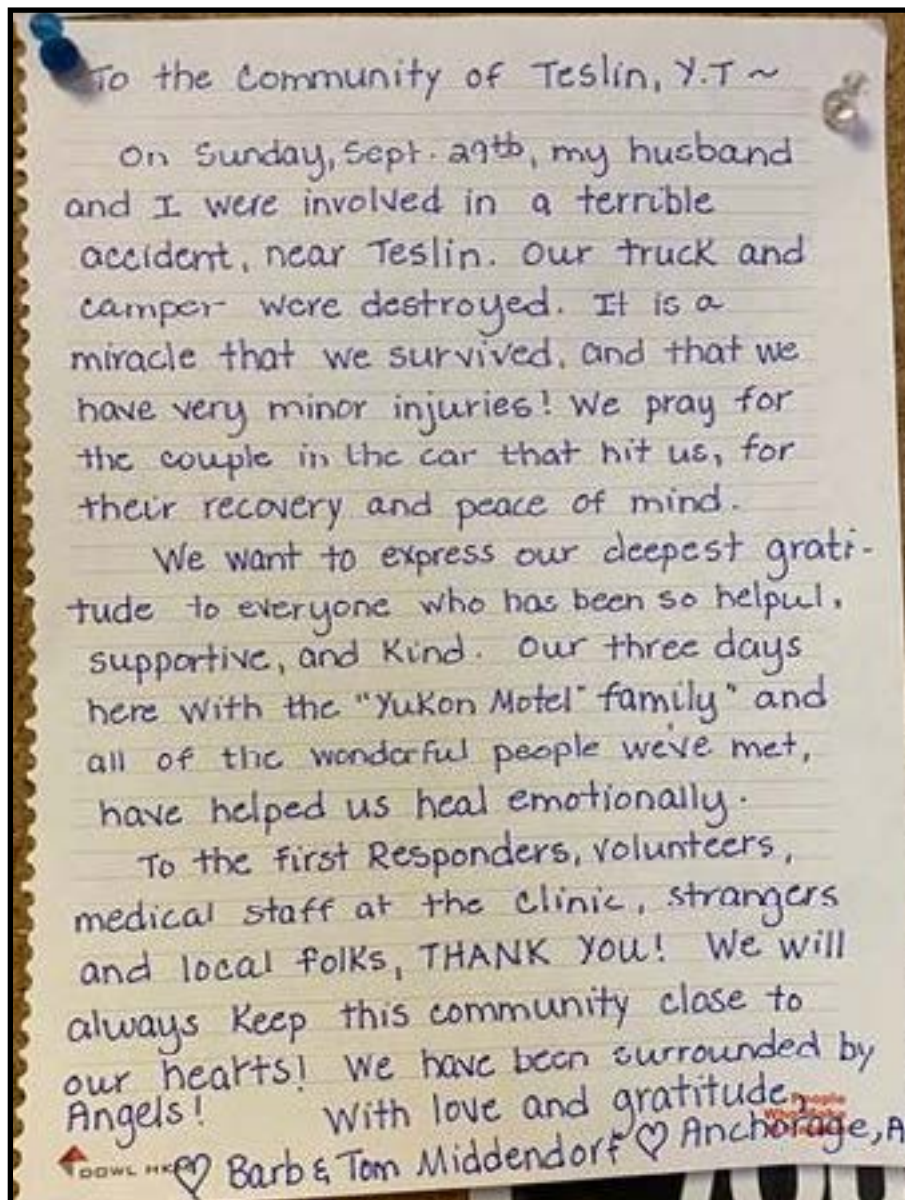 To the Community of Teslin, Y.T ~
On Sunday, Sept. 29th, my husband
and I were involved in a terrible
accident, near Teslin. Our truck and
camper were destroyed. It is a
miracle that we survived, and that we
have very minor injuries! We pray for
the couple in the car that hit us, for
their recovery and peace of mind.
We want to express our deepest grati-
tude to everyone who has been so helpul,
supportive, and Kind. Our three days
here with the "Yukon Motel" family" and
all of the wonderful people we've met,
have helped us heal emotionally.
To the first Responders, volunteers,
medical staff at the clinic, strangers
and local folks, THANK YOU! We will
always Keep this community close to
our hearts! We have been surrounded by
Angels! With love and gratitude,
♡ Barb & Tom Middendorf ♡ Anchorage, A
People
DOWL